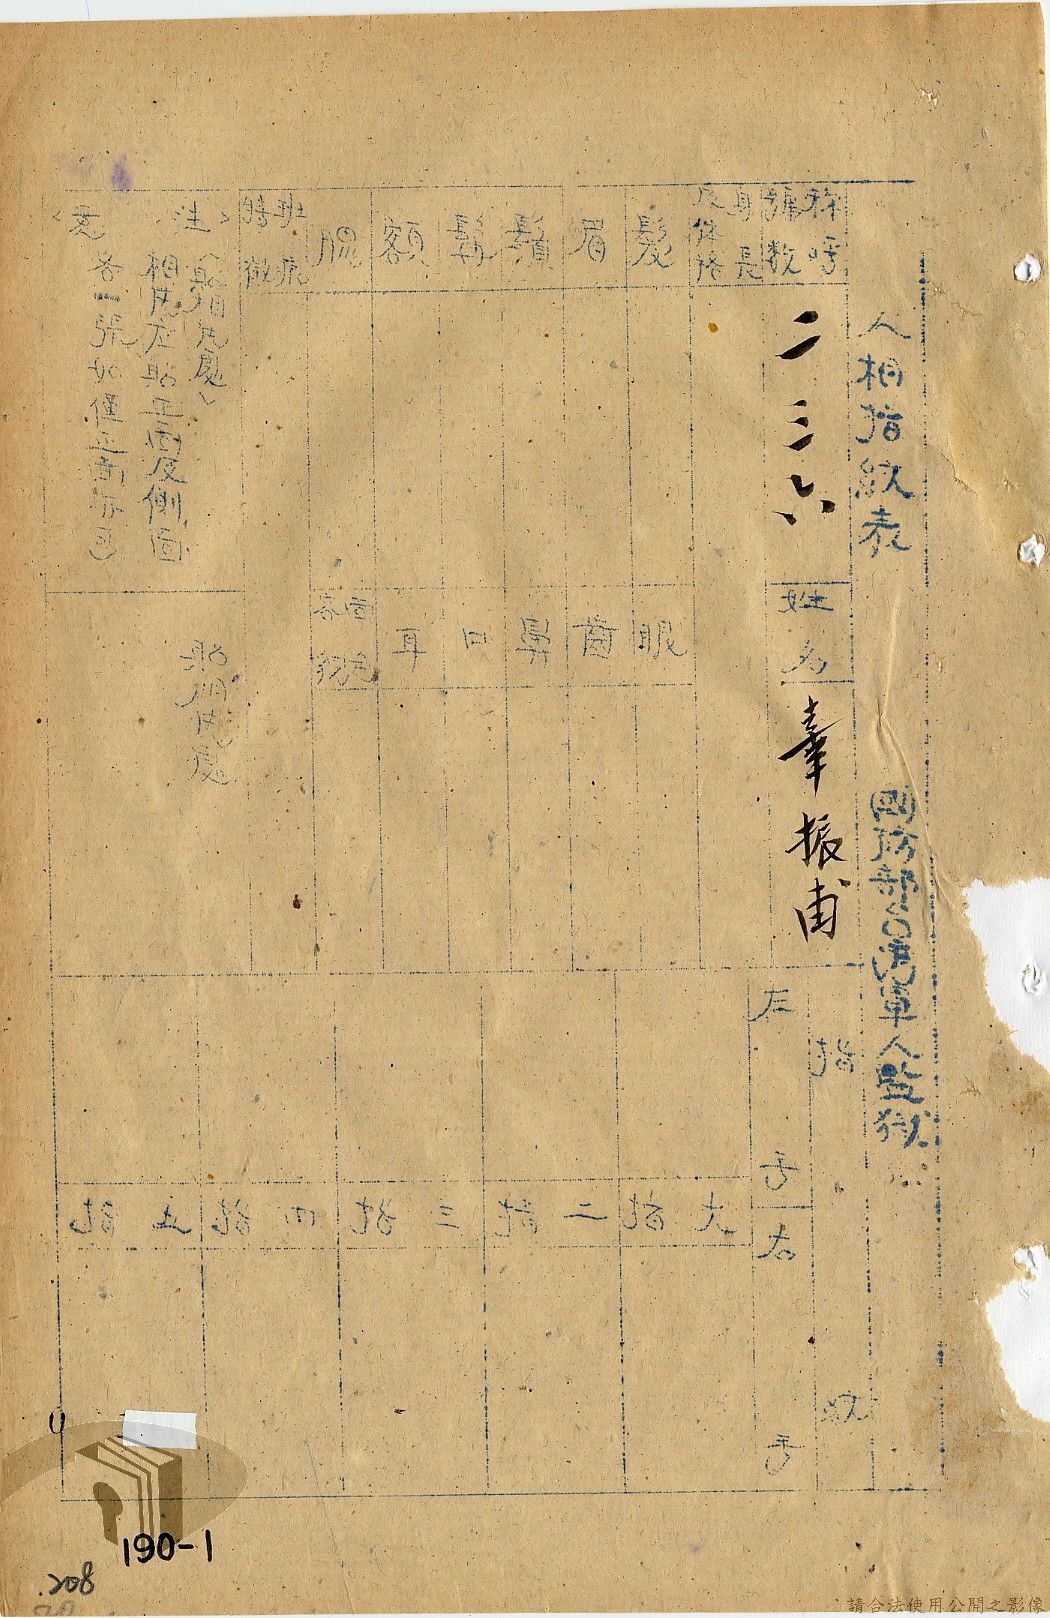 人相指紋表
國防部台灣軍人監獄
称呼
號数
二三六
姓名
辜振甫
身長
及体格
髮
眉
鬚
髯
額
眼
齒
鼻
口
耳
特徵
注意
相片应貼正面及側面
各一張如僅正面亦可
貼相片處
指紋
左手
右手
大指
二指
三指
四指
五指
190-1
208
請合法使用公開之影像